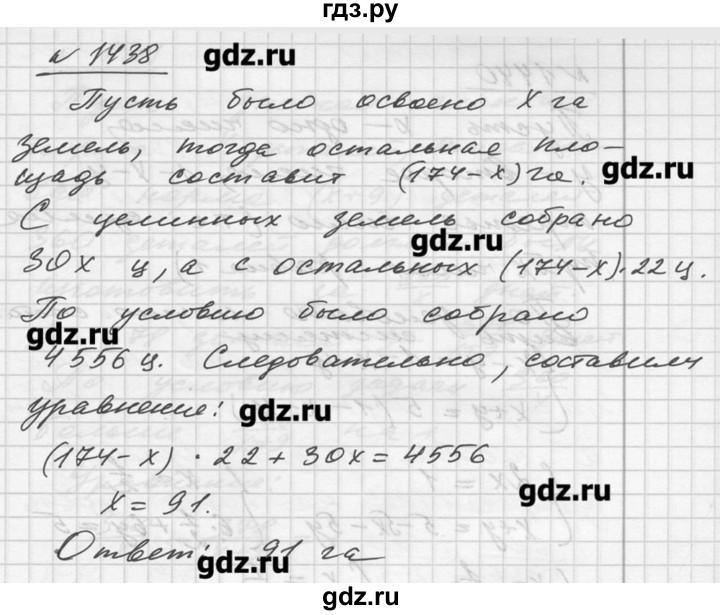 гдз.ру
№ 1438 gdz.ru
Пусть было освоено x га
земель, тогда остальная пло-
щадь составит (174-x) га. gdz.ru
С целинных земель собрано
gdz.ru
30x ц, а с остальных (174-x)·22 ц.
По условию было собрано
gdz.ru
4556 ц. Следовательно, составим
уравнение: gdz.ru
(174-x) · 22 + 30x = 4556
x = 91. gdz.ru
Ответ: 91 га
gdz.ru
gdz.ru